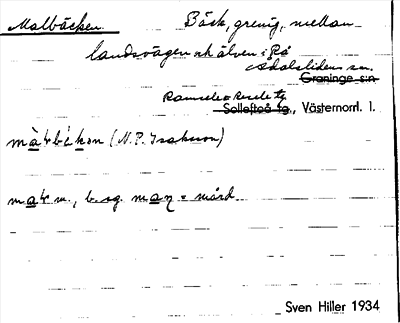 Malbäcken. Bäck, grenig, mellan
landsvägen och älven i Rå
Ådalslidens sn.
Graninge s:n
Ramsele o Resele tg.
Sollefteå tg., Västernorrl. l.
(N. P. Isaksson)
m., b. sg. = mård
Sven Hiller 1934